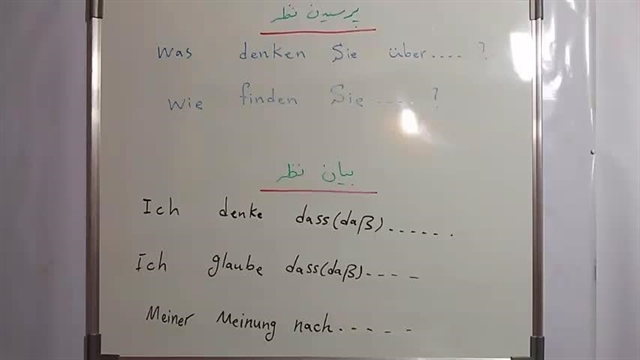 پرسیدن نظر
Was denken Sie über.... ?
Wie finden Sie ..... ?
بیان نظر
Ich denke dass(daß)......
Ich glaube dass(daß)....
Meiner Meinung nach.....